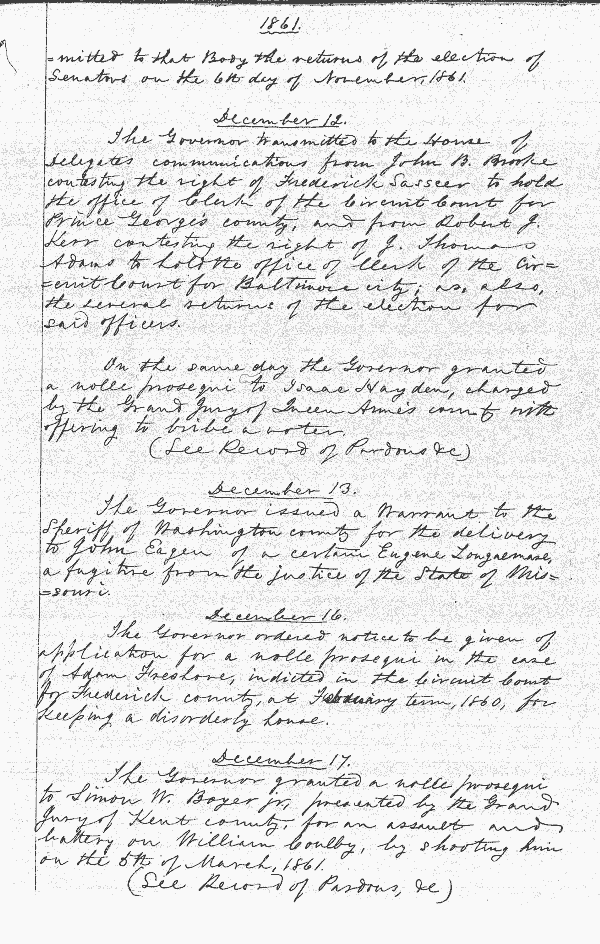 1861.
=mitted to that Body the returns of the election of
Senators on the 6th day of November, 1861.
December 12.
The Governor transmitted to the House of
Delegates communications from John B. Brooke
contesting the right of Frederick Sasscer to hold
the office of Clerk of the Circuit Court for
Prince George's county, and from Robert J.
Kerr contesting the right of J. Thomas
Adams to hold the office of Clerk of the Cir=
=cuit Court for Baltimore city; as, also,
the several returns of the election for
said officers.
On the same day the Governor granted
a nolle prosequi to Isaac Hayden, charged
by the Grand Jury of Queen Anne's county with
offering to bribe a voter.
(See Record of Pardons &c)
December 13.
The Governor issued a Warrant to the
Sheriff of Washington county for the delivery
to John Eagen of a certain Eugene
a fugitive from the justice of the State of Mis=
=souri.
December 16.
The Governor ordered notice to be given of
application for a nolle prosequi in the case
of Adam Freshore, indicted in the Circuit Court
for Frederick county, at February term, 1860, for
keeping a disorderly house.
December 17.
The Governor granted a nolle prosequi
to Simon W. Boyer jr, presented by the Grand
Jury of Kent county, for an assault and
battery on William Coulby, by shooting him
on the 5th of March, 1861.
(See Record of Pardons, &c)